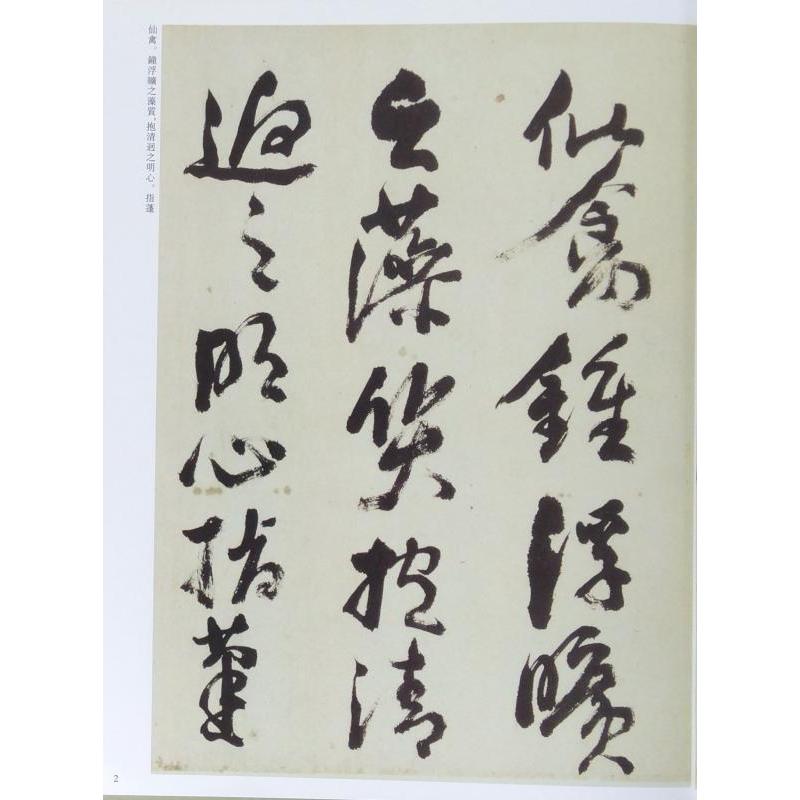 仙禽鍾浮曠
之藻質抱清
迥之明心指蓬
仙禽。鍾浮曠之藻質，抱清迥之明心。指蓬
2